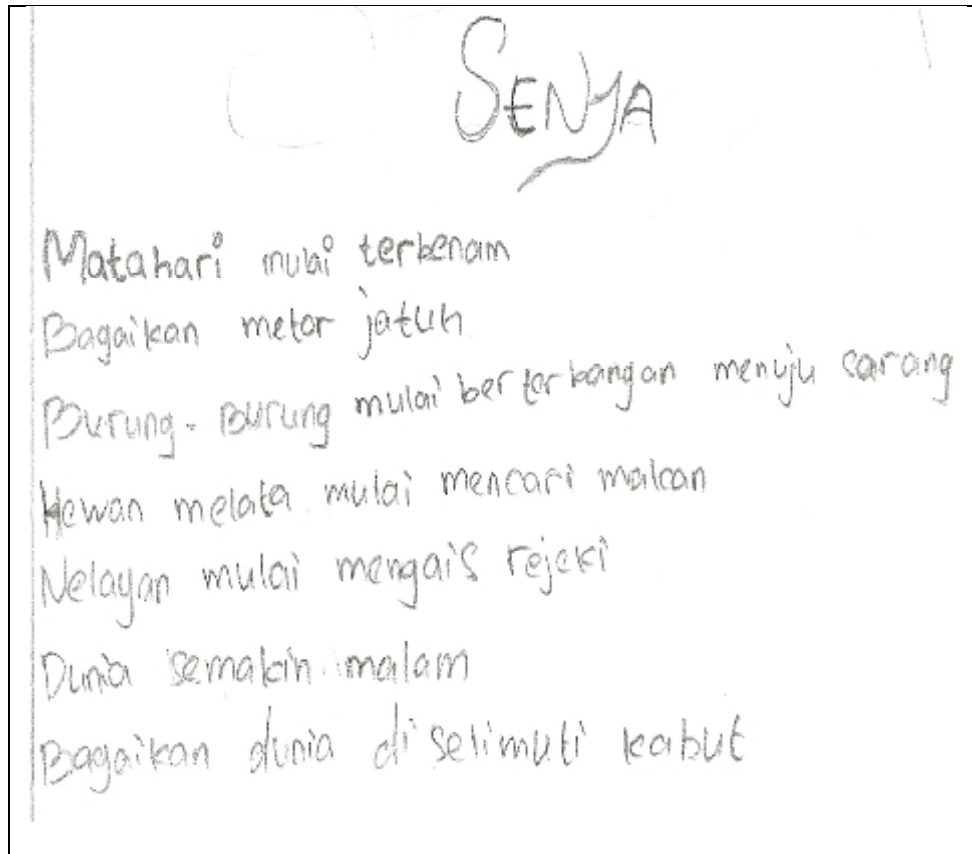 SENJA
Matahari mulai terbenam
Bagaikan metor jatuh
Burung - Burung mulai berterbangan menuju sarang
Hewan melata mulai mencari makan
Nelayan mulai mengais rejeki
Dunia semakin malam
Bagaikan dunia di selimuti kabut